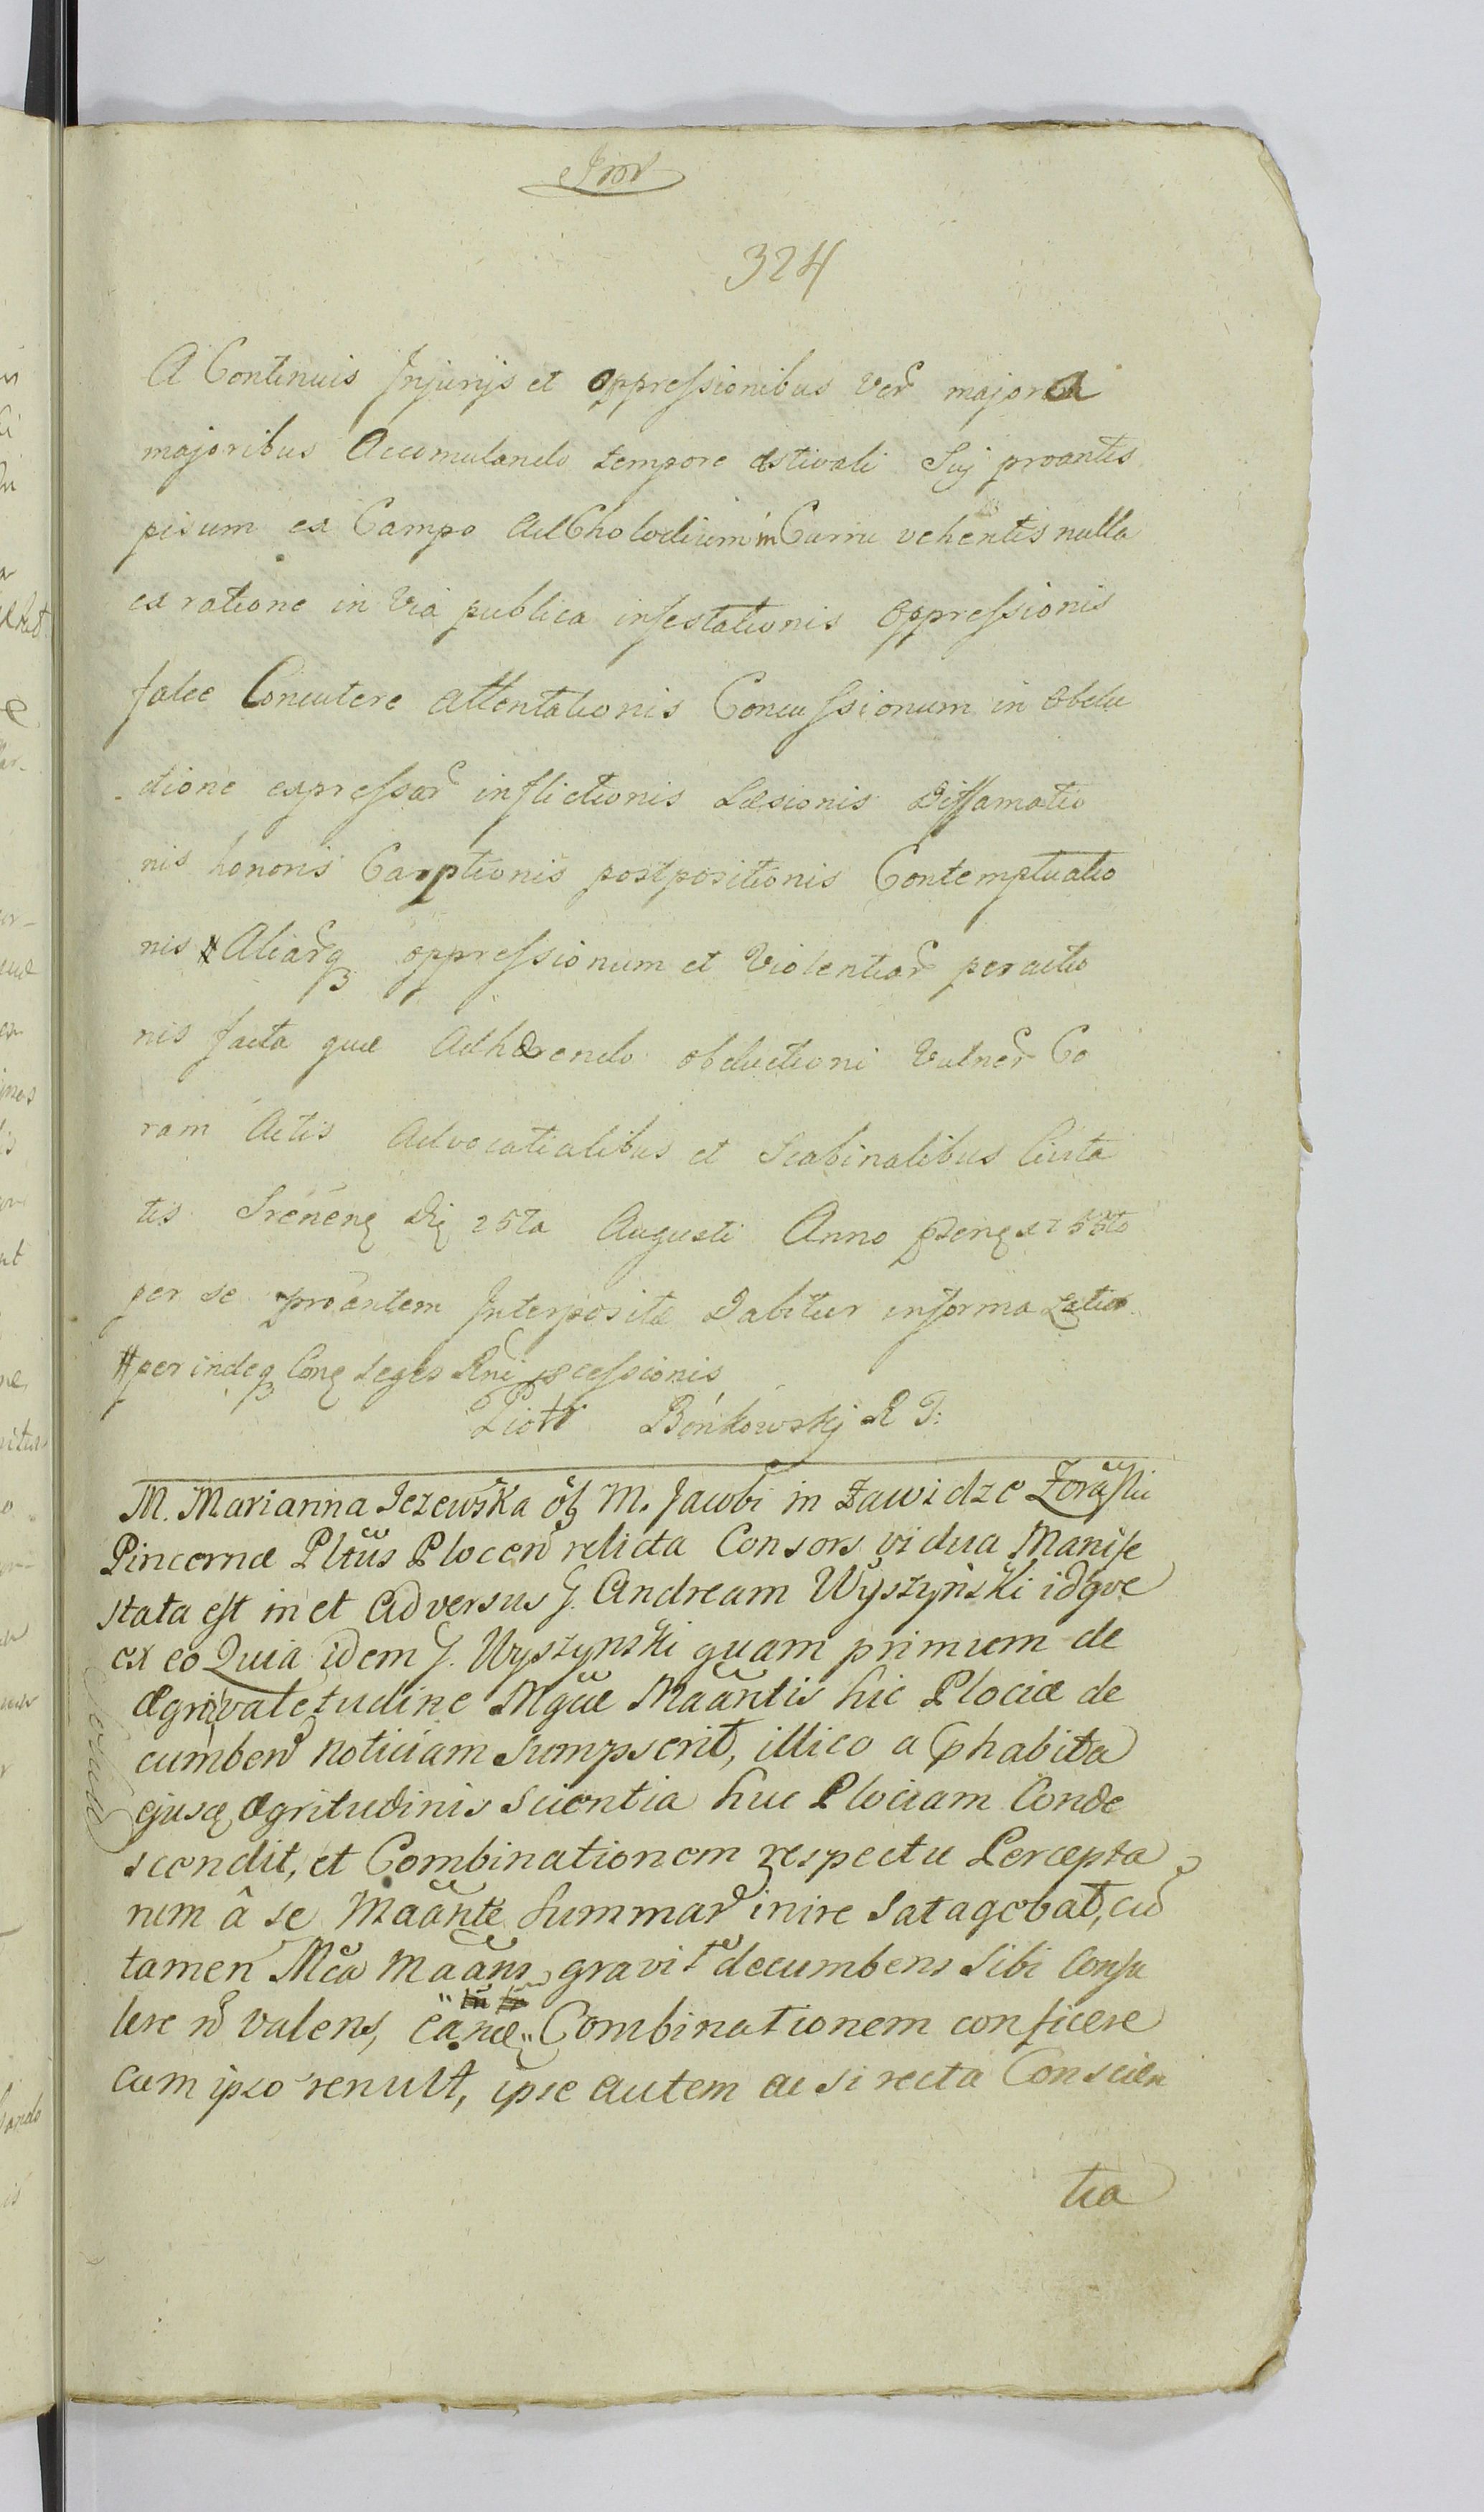 324
A Continuis Injurijs et oppressionibus Ver majora
majoribus Accumulando tempore æstivali Suj proantis
pisum ex Campo Ad Cholodium in Curru vehentis nulla
ex ratione in Via publica infestationis oppressionis
falce Concutere attentationis Concussionum in obdu
ctione expressar inflictionis Læsionis Diffamatio
nis honoris Carptionis postpositionis Contemptuatio
nis # Aliarq oppressionum et Violentiar peractio
nis facta quæ Adhærendo obductioni Vulner Co
ram Actis Advocatialibus et Scabinalibus Civita
tis Srenen Die 25ta Augusti Anno 1755to
per se proantem Interpositæ Dabitur in forma Latior
# perindeq Con Leges Rni
Piotr Bońkowskj R P:
M. Marianna Jezewska olg M. Jacobi in Zawidze Zoraski
Pincernæ Pltus Plocen relicta Consors vidua Manife
stata est in et Adversus G. Andream Wyszyński idque
ex eo Quia idem G. Wyszynski quam primum de
ægrivaletudine Mgcæ Maantis hic Plociæ de
cumben noticiam sumpserit, illico a phabita
ejusd ægritudinis scientia huc Plociam Conde
scendit, et Combinationem respectu Percepta
rum â se Maante Summar inire satagebat, cu
tamen Mca Maans gravit decumbens Sibi Consu
lere n valens, eand Combinationem conficere
cum ipso renuit, ipse autem ac si recta Conscien
tia